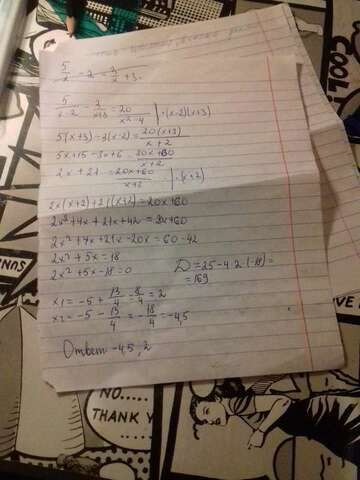 5/x - 2 = 3/x + 3.
5/x-2 - 3/x+3 = 20/x²-4 | ·(x-2)(x+3)
5(x+3)-3(x-2) = 20(x+3)/x+2
5x+15-3x+6 = 20x+60/x+2
2x+21 = 20x+60/x+2 | ·(x+2)
2x(x+2)+21(x+2)=20x+60
2x²+4x+21x+42=20x+60
2x²+4x+21x-20x=60-42
2x²+5x=18
2x²+5x-18=0
D=25-4·2·(-18)=
=169
x1=-5+13/4=8/4=2
x2=-5-13/4=-18/4=-4,5
Ответ -4,5, 2
NO....
THANK YOU